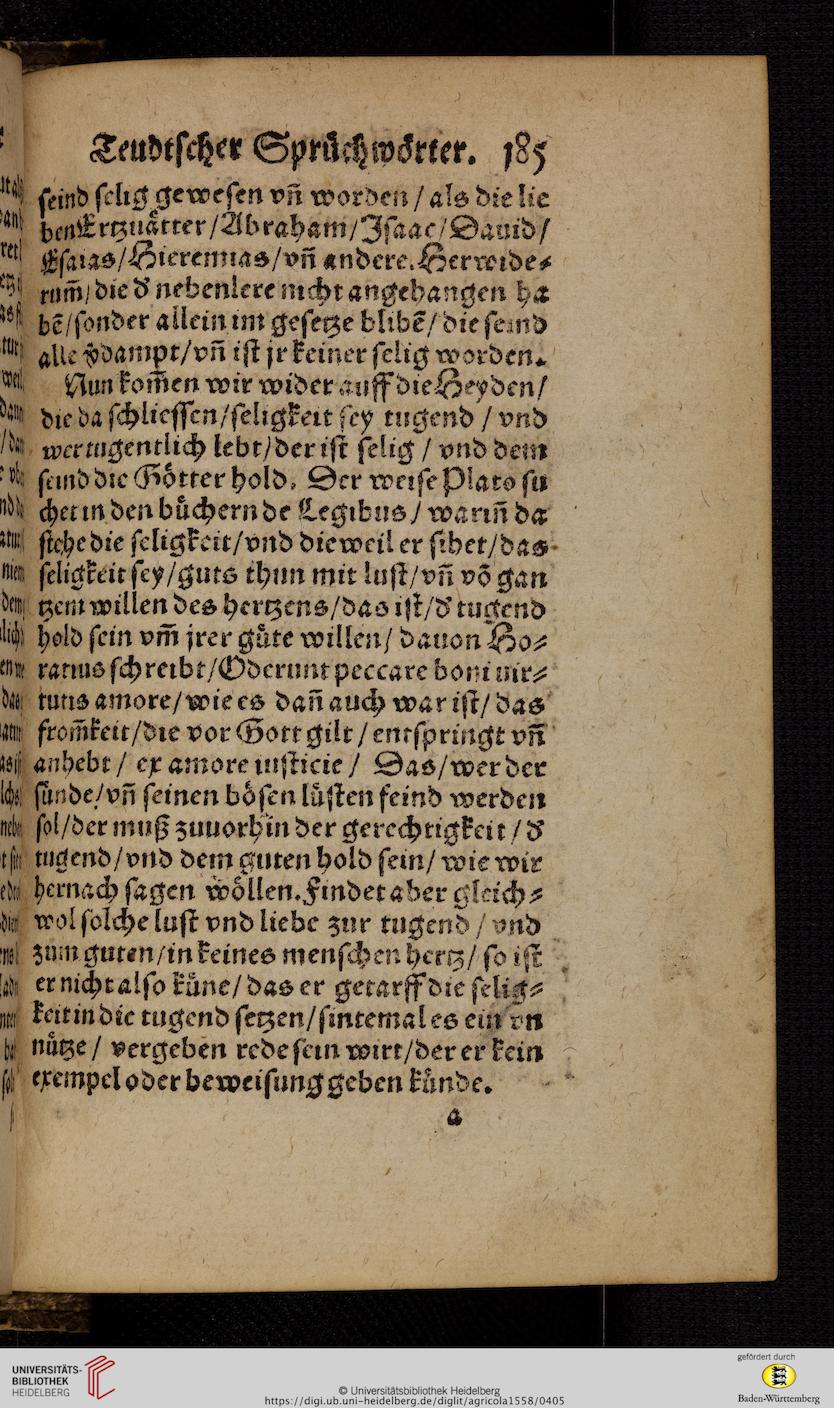 Teudtscher Sprůchwörter. 185
seind selig gewesen vñ worden / als die lie
ben Ertzuåtter / Abraham / Isaac / Dauid /
Esaias / Hieremias / vñ andere. Herwide⸗
rum̃ / die ď nebenlere nicht angehangen ha
bẽ / sonder allein im gesetze blibẽ / die seind
alle ṽdampt / vñ ist jr keiner selig worden.
Nun kom̃en wir wider auff die Heyden /
die da schliessen / seligkeit sey tugend / vnd
wer tugentlich lebt / der ist selig / vnd dem
seind die Gôtter hold. Der weise Plato su
chet in den bůchern de Legibus / warin̄ da
stehe die seligkeit / vnd dieweil er sihet / das
seligkeit sey / guts thun mit lust / vñ võ gan
tzem willen des hertzens / das ist / ď tugend
hold sein vm̃ jrer gůte willen / dauon Ho⸗
ratius schreibt / Oderunt peccare boni uir⸗
tutis amore / wie es dañ auch war ist / das
from̃keit / die vor Gott gilt / entspringt vñ
anhebt / ex amore iusticie / Das / wer der
sünde / vñ seinen bôsen lůsten feind werden
sol / der muß zuuorhin der gerechtigkeit / ď
tugend / vnd dem guten hold sein / wie wir
hernach sagen wôllen. Findet aber gleich⸗
wol solche lust vnd liebe zur tugend / vnd
zum guten / in keines menschen hertz / so ist
er nicht also kůne / das er getarff die selig⸗
keit in die tugend setzen / sintemal es ein vn
nůtze / vergeben rede sein wirt / der er kein
exempel oder beweisung geben kůnde.
a
UNIVERSITÄTS-
BIBLIOTHEK
HEIDELBERG
© Universitätsbibliothek Heidelberg
https://digi.ub.uni-heidelberg.de/diglit/agricola1558/0405
gefördert durch
Baden-Württemberg